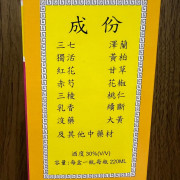 成份
三七　澤蘭
獨活　黃柏
紅花　甘草
赤芍　花椒
三棱　桃仁
乳香　續斷
沒藥　大黃
及其他中藥材
酒度30%(V/V)
容量:每盒一瓶,每瓶220ML